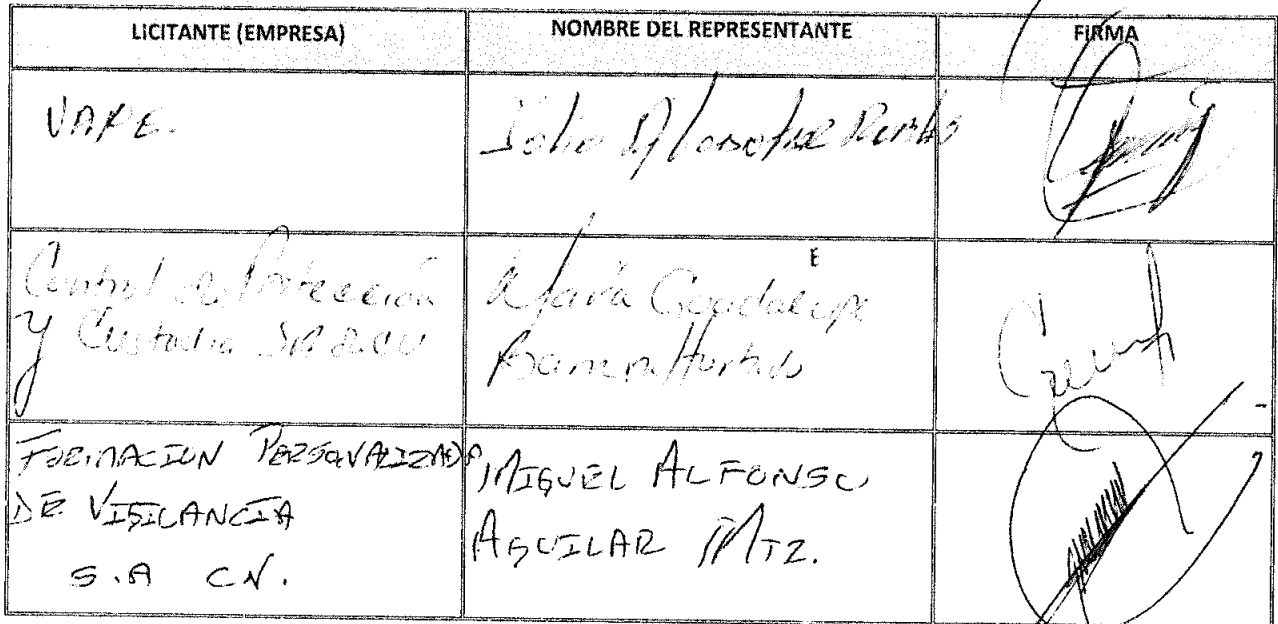 LICITANTE (EMPRESA) NOMBRE DEL REPRESENTANTE FIRMA
VAPE.
Control de Protección
y Custodia SA de CV
María Guadalupe
Hurtado
FORMACION PERSONALIZADA
DE VIGILANCIA
S.A CV.
MIGUEL ALFONSO
AGUILAR MTZ.